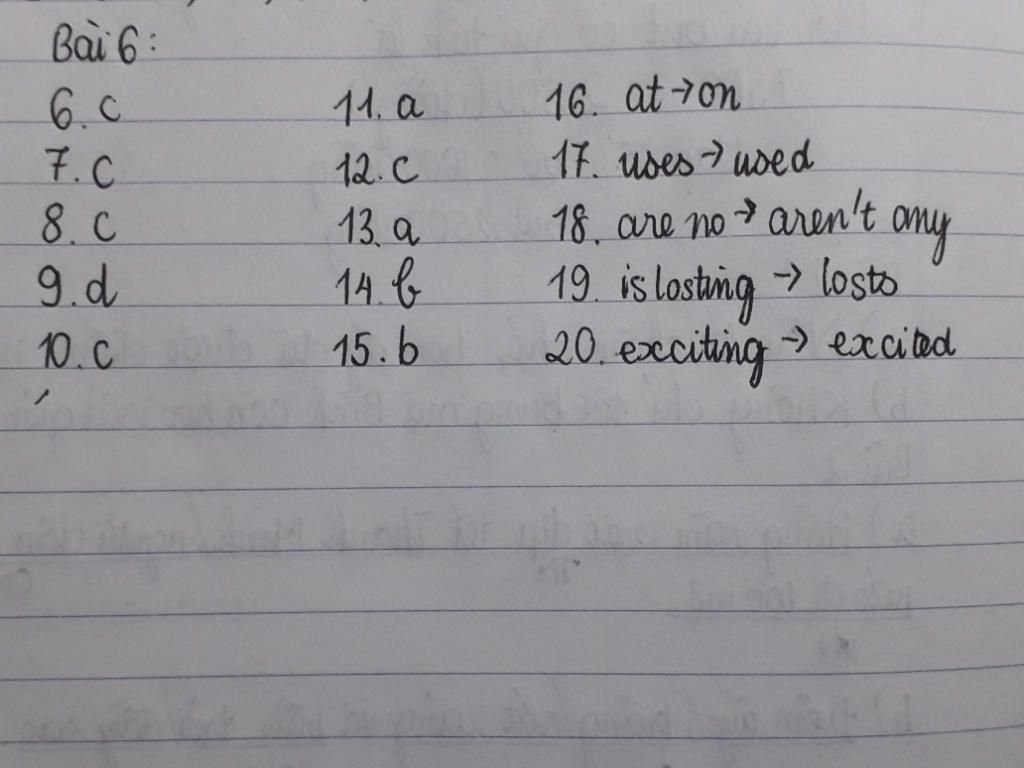 Bài 6:
6. c 11. a 16. at → on
7. c 12. c 17. uses → used
8. c 13. a 18. are no → aren't any
9. d 14. b 19. is losting → losts
10. c 15. b 20. excciting → excited